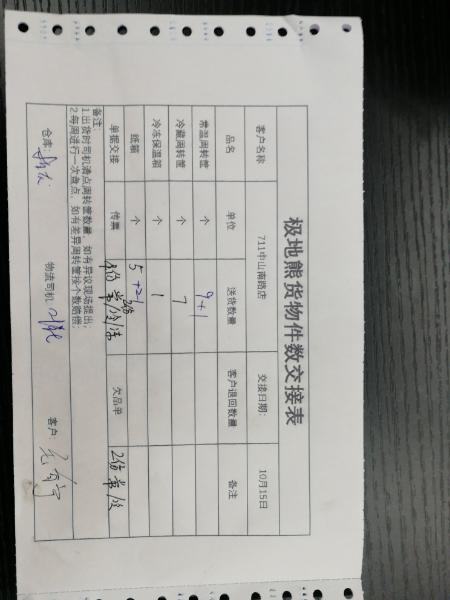 极地熊货物件数交接表
客户名称 711中山南路店 交接日期： 10月15日
品名 单位 送货数量 客户退回数量 备注
常温周转筐 个 9+1
冷藏周转筐 个 7
冷冻保温箱 个 1
纸箱 个 5+21
单据交接 传票 欠品单 2份
备注：
1.出货时司机清点周转筐数量，如有异议现场提出；
2.每周进行一次盘点，如有差异周转筐按个数赔偿；
仓库： 物流司机 客户：